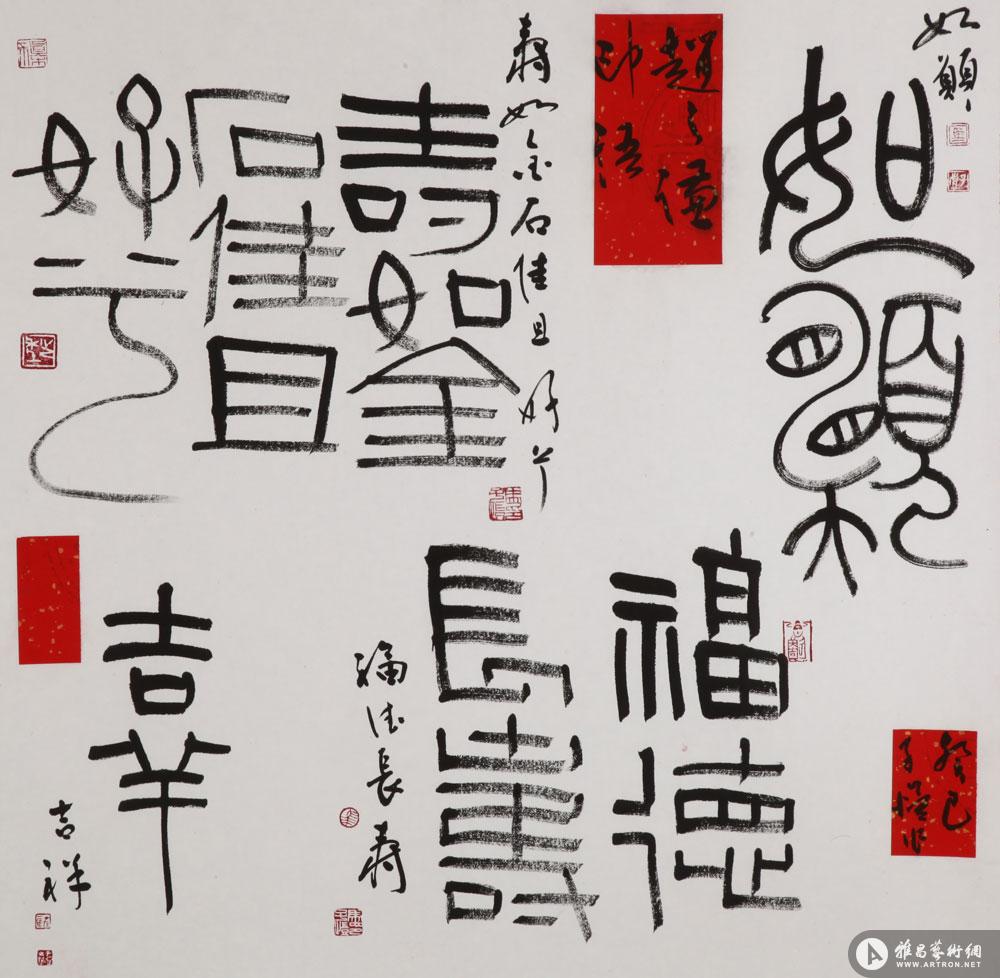 如願
如願
趙之謙
印語
壽如金石佳且好兮
壽如金
石佳且
好兮
福德
長壽
福德長壽
吉羊
吉祥
癸巳
雅昌藝術網
WWW.ARTRON.NET